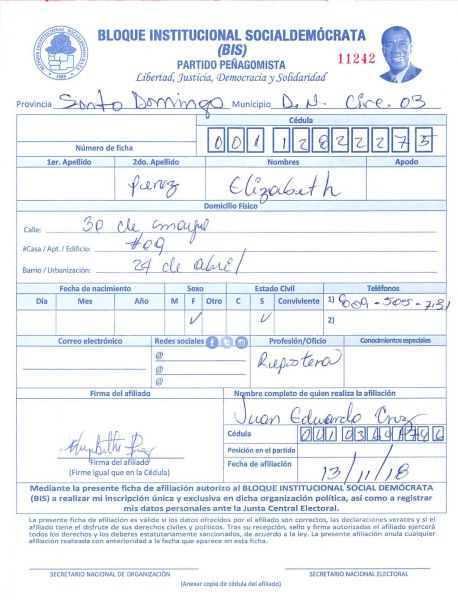 BLOQUE INSTITUCIONAL SOCIALDEMÓCRATA
(BIS)
PARTIDO PEÑAGOMISTA
Libertad, Justicia, Democracia y Solidaridad
11242
BLOQUE INSTITUCIONAL SOCIALDEMOCRATA
1989
Provincia Santo Domingo Municipio D.N. Circ. 03
Cédula
Número de ficha
1er. Apellido 2do. Apellido Nombres Apodo
Perez Elizabeth
Domicilio Físico
Calle: 30 de mayo
#Casa / Apt. / Edificio: #09
Barrio / Urbanización: 24 de abril
Fecha de nacimiento Sexo Estado Civil Teléfonos
Día Mes Año M F Otro C S Conviviente 1)
2)
Correo electrónico Redes sociales Profesión/Oficio Conocimientos especiales
@
@
@
Repostera
Firma del afiliado Nombre completo de quien realiza la afiliación
Juan Eduardo Cruz
Cédula
Posición en el partido
Firma del afiliado
(Firme igual que en la Cédula)
Fecha de afiliación 13/11/18
Mediante la presente ficha de afiliación autorizo al BLOQUE INSTITUCIONAL SOCIAL DEMÓCRATA
(BIS) a realizar mi inscripción única y exclusiva en dicha organización política, así como a registrar
mis datos personales ante la Junta Central Electoral.
La presente ficha de afiliación es válida si los datos ofrecidos por el afiliado son correctos, las declaraciones veraces y si el
afiliado tiene el disfrute de sus derechos civiles y políticos. Tras su recepción, sello y firma autorizadas el afiliado ejercerá
todos los derechos y los deberes estatutariamente sancionados, de acuerdo a la ley. La presente afiliación anula cualquier
afiliación realizada con anterioridad a la fecha que aparece en esta ficha.
SECRETARIO NACIONAL DE ORGANIZACIÓN SECRETARIO NACIONAL ELECTORAL
(Anexar copia de cédula del afiliado)